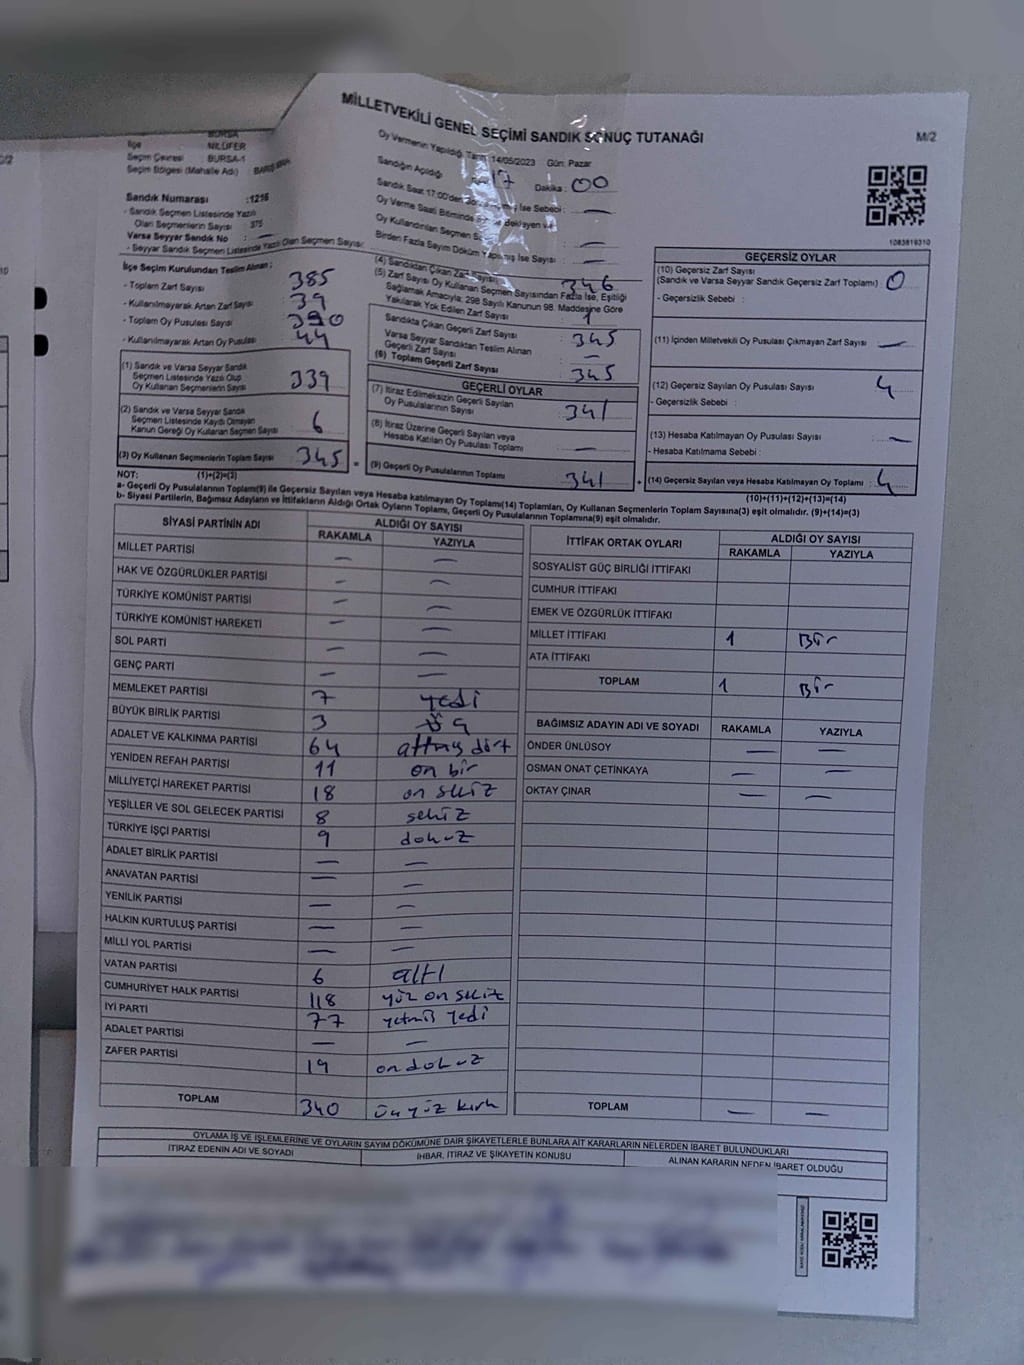 MİLLETVEKİLİ GENEL SEÇİMİ SANDIK SONUÇ TUTANAĞI
M/2
BURSA
İlçe NİLÜFER
Seçim Çevresi BURSA-1
Seçim Bölgesi (Mahalle Adı) :
Sandık Numarası :1216
- Sandık Seçmen Listesinde Yazılı
Olan Seçmenlerin Sayısı 375
Varsa Seyyar Sandık No : —
- Seyyar Sandık Seçmen Listesinde Yazılı Olan Seçmen Sayısı:
Oy Vermenin Yapıldığı Tarih 14/05/2023 Gün: Pazar
Sandığın Açıldığı 17 Dakika : 00
Sandık Saat 17:00'den İse Sebebi : —
Oy Verme Saati Bitiminde Bekleyen ve
Oy Kullandırılan Seçmen —
Birden Fazla Sayım Döküm İse Sayısı : —
1083819310
İlçe Seçim Kurulundan Teslim Alınan ;
- Toplam Zarf Sayısı 385
- Kullanılmayarak Artan Zarf Sayısı 39
- Toplam Oy Pusulası Sayısı 390
- Kullanılmayarak Artan Oy Pusulası 44
(1) Sandık ve Varsa Seyyar Sandık
Seçmen Listesinde Yazılı Olup
Oy Kullanan Seçmenlerin Sayısı 339
(2) Sandık ve Varsa Seyyar Sandık
Seçmen Listesinde Kaydı Olmayan
Kanun Gereği Oy Kullanan Seçmen Sayısı 6
(3) Oy Kullanan Seçmenlerin Toplam Sayısı 345
(4) Sandıktan Çıkan Zarf Sayısı 346
(5) Zarf Sayısı Oy Kullanan Seçmen Sayısından Fazla İse, Eşitliği
Sağlamak Amacıyla; 298 Sayılı Kanunun 98. Maddesine Göre
Yakılarak Yok Edilen Zarf Sayısı 1
Sandıkta Çıkan Geçerli Zarf Sayısı 345
Varsa Seyyar Sandıktan Teslim Alınan
Geçerli Zarf Sayısı —
(6) Toplam Geçerli Zarf Sayısı 345
GEÇERLİ OYLAR
(7) İtiraz Edilmeksizin Geçerli Sayılan
Oy Pusulalarının Sayısı 341
(8) İtiraz Üzerine Geçerli Sayılan veya
Hesaba Katılan Oy Pusulası Toplamı —
(9) Geçerli Oy Pusulalarının Toplamı 341
GEÇERSİZ OYLAR
(10) Geçersiz Zarf Sayısı
(Sandık ve Varsa Seyyar Sandık Geçersiz Zarf Toplamı) 0
- Geçersizlik Sebebi :
(11) İçinden Milletvekili Oy Pusulası Çıkmayan Zarf Sayısı —
(12) Geçersiz Sayılan Oy Pusulası Sayısı 4
- Geçersizlik Sebebi :
(13) Hesaba Katılmayan Oy Pusulası Sayısı —
- Hesaba Katılmama Sebebi :
(14) Geçersiz Sayılan veya Hesaba Katılmayan Oy Toplamı : 4
NOT: (1)+(2)=(3) (10)+(11)+(12)+(13)=(14)
a- Geçerli Oy Pusulalarının Toplamı(9) ile Geçersiz Sayılan veya Hesaba katılmayan Oy Toplamı(14) Toplamları, Oy Kullanan Seçmenlerin Toplam Sayısına(3) eşit olmalıdır. (9)+(14)=(3)
b- Siyasi Partilerin, Bağımsız Adayların ve İttifakların Aldığı Ortak Oyların Toplamı, Geçerli Oy Pusulalarının Toplamına(9) eşit olmalıdır.
SİYASİ PARTİNİN ADI ALDIĞI OY SAYISI
RAKAMLA YAZIYLA
MİLLET PARTİSİ — —
HAK VE ÖZGÜRLÜKLER PARTİSİ — —
TÜRKİYE KOMÜNİST PARTİSİ — —
TÜRKİYE KOMÜNİST HAREKETİ — —
SOL PARTİ — —
GENÇ PARTİ — —
MEMLEKET PARTİSİ 7 yedi
BÜYÜK BİRLİK PARTİSİ 3 üç
ADALET VE KALKINMA PARTİSİ 64 altmış dört
YENİDEN REFAH PARTİSİ 11 on bir
MİLLİYETÇİ HAREKET PARTİSİ 18 on sekiz
YEŞİLLER VE SOL GELECEK PARTİSİ 8 sekiz
TÜRKİYE İŞÇİ PARTİSİ 9 dokuz
ADALET BİRLİK PARTİSİ — —
ANAVATAN PARTİSİ — —
YENİLİK PARTİSİ — —
HALKIN KURTULUŞ PARTİSİ — —
MİLLİ YOL PARTİSİ — —
VATAN PARTİSİ 6 altı
CUMHURİYET HALK PARTİSİ 118 yüz on sekiz
İYİ PARTİ 77 yetmiş yedi
ADALET PARTİSİ — —
ZAFER PARTİSİ 19 on dokuz
TOPLAM 340 üç yüz kırk
İTTİFAK ORTAK OYLARI ALDIĞI OY SAYISI
RAKAMLA YAZIYLA
SOSYALİST GÜÇ BİRLİĞİ İTTİFAKI
CUMHUR İTTİFAKI
EMEK VE ÖZGÜRLÜK İTTİFAKI
MİLLET İTTİFAKI 1 Bir
ATA İTTİFAKI
TOPLAM 1 Bir
BAĞIMSIZ ADAYIN ADI VE SOYADI RAKAMLA YAZIYLA
ÖNDER ÜNLÜSOY — —
OSMAN ONAT ÇETİNKAYA — —
OKTAY ÇINAR — —
TOPLAM — —
OYLAMA İŞ VE İŞLEMLERİNE VE OYLARIN SAYIM DÖKÜMÜNE DAİR ŞİKAYETLERLE BUNLARA AİT KARARLARIN NELERDEN İBARET BULUNDUKLARI
İTİRAZ EDENİN ADI VE SOYADI İHBAR, İTİRAZ VE ŞİKAYETİN KONUSU ALINAN KARARIN NEDEN İBARET OLDUĞU